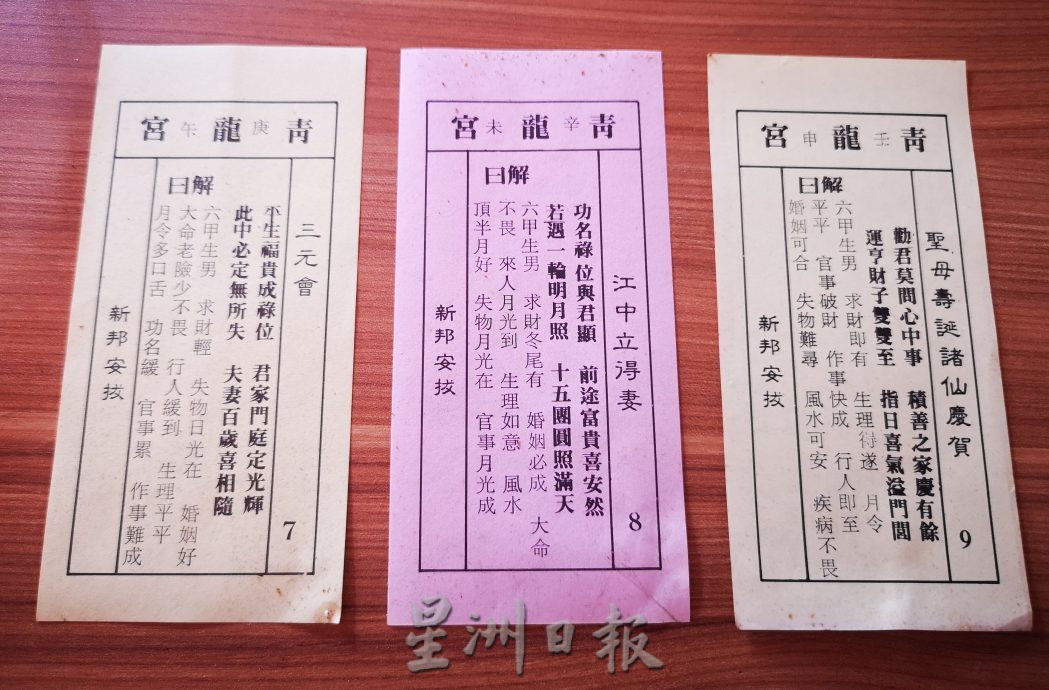 靑庚龍午宮
三元會
7
平生福貴成祿位 君家門庭定光輝
此中必定無所失 夫妻百歲喜相隨
解曰
六甲生男 求財輕 失物日光在 婚姻好
大命老險少不畏 行人緩到 生理平平
月令多口舌 功名緩 官事累 作事難成
新邦安拔
靑辛龍未宮
江中立得妻
8
功名祿位與君顯 前途富貴喜安然
若遇一輪明月照 十五團圓照滿天
解曰
六甲生男 求財冬尾有 婚姻必成 大命
不畏 來人月光到 生理如意 風水
頂半月好 失物月光在 官事月光成
新邦安拔
靑壬龍申宮
聖母壽誕諸仙慶賀
9
勸君莫問心中事 積善之家慶有餘
運亨財子雙雙至 指日喜氣溢門閭
解曰
六甲生男 求財即有 生理得遂 月令
平平 官事破財 作事快成 行人即至
婚姻可合 失物難尋 風水可安 疾病不畏
新邦安拔
星洲日報